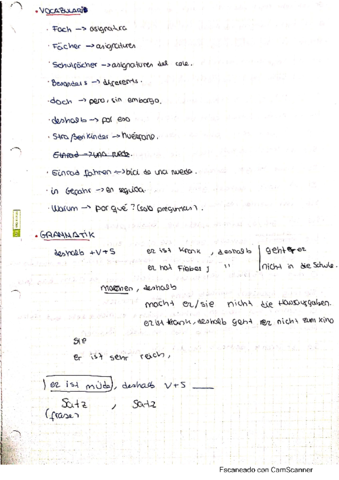 • VOCABULARIO
· Fach → asignatura
· Fächer → asignaturas
· Schulfächer → asignaturas del cole.
· Besonders → diferente.
· doch → pero, sin embargo.
· deshalb → por eso
· Straßenkinder → huérfano.
Einrad → una rueda.
· Einrad fahren → bici de una rueda.
· in Gefahr → en
· Warum → por qué? (solo preguntas).
• GRAMMATIK
deshalb + V + S er ist krank, deshalb geht er
er hat Fieber, " nicht in die Schule.
machen, deshalb
macht er/sie nicht die Hausaufgaben.
er ist krank, deshalb geht er nicht zum Kino
sie
er ist sehr reich,
er ist müde, deshalb V + S
Satz , Satz
(frase)
Escaneado con CamScanner